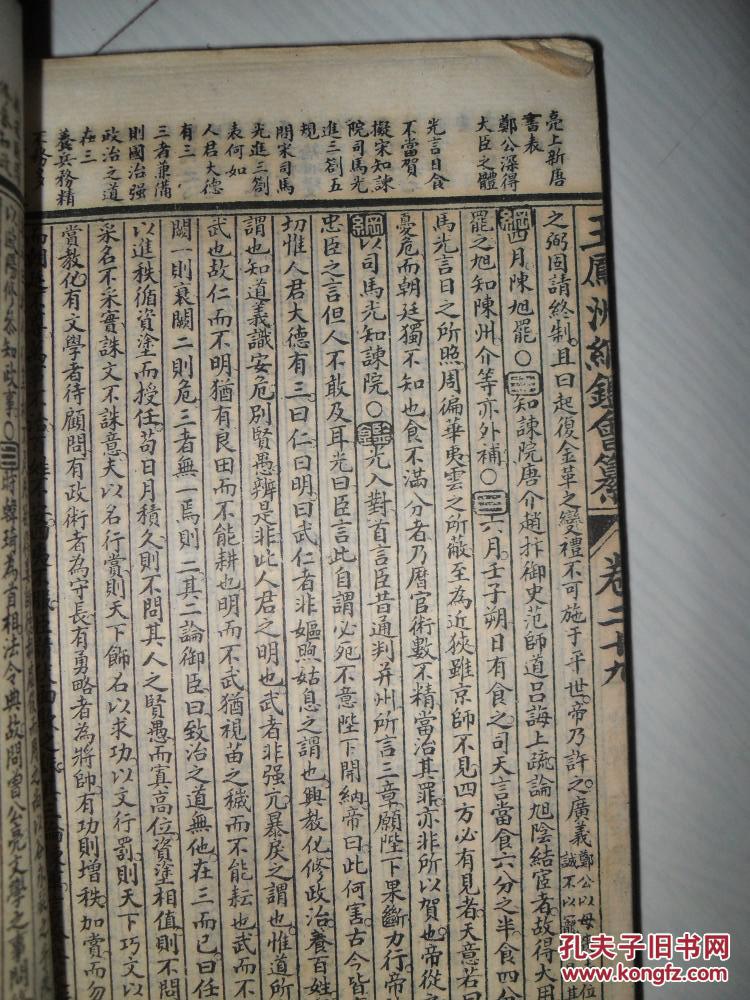 亮上新唐
書表
鄭公深得
大臣之體
光言日食
不當賀
擬宋知諫
院司馬光
進三劄五
規
問宋司馬
光進三劄
表何如
人君大德
有三
三者兼備
則國治强
政治之道
在三
養兵務精
不務多
王鳳洲綱鑑會纂 卷二十九
之弼固請終制且曰起復金革之變禮不可施于平世帝乃許之廣義鄭公以母
誠不以寵
綱四月陳旭罷〇 知諫院唐介趙抃御史范師道呂誨上疏論旭陰結宦者故得大用
罷之旭知陳州介等亦外補〇 六月壬子朔日有食之司天言當食六分之半食四分
馬光言日之所照周徧華夷雲之所蔽至為近狹雖京師不見四方必有見者天意若曰
憂危而朝廷獨不知也食不滿分者乃曆官術數不精當治其罪亦非所以賀也帝從
綱以司馬光知諫院〇鑑光入對首言臣昔通判并州所言三章願陛下果斷力行帝
忠臣之言但人不敢及耳光曰臣言此自謂必死不意陛下開納帝曰此何害古今皆
切惟人君大德有三曰仁曰明曰武仁者非嫗煦姑息之謂也興教化修政治養百姓
謂也知道義識安危別賢愚辨是非此人君之明也武者非强亢暴戾之謂也惟道所
武也故仁而不明猶有良田而不能耕也明而不武猶視苗之穢而不能耘也武而不
闕一則衰闕二則危三者無一焉則二其二論御臣曰致治之道無他在三而已曰任
以進秩循資塗而授任苟日月積久則不問其人之賢愚而寘高位資塗相值則不問
采名不采實誅文不誅意夫以名行賞則天下飾名以求功以文行罰則天下巧文以
賞教化有文學者待顧問有政術者為守長有勇略者為將帥有功則增秩加賞而勿
以歐陽修參知政事〇 時韓琦為首相法令典故問曾公亮文學之事問
孔夫子旧书网
www.kongfz.com